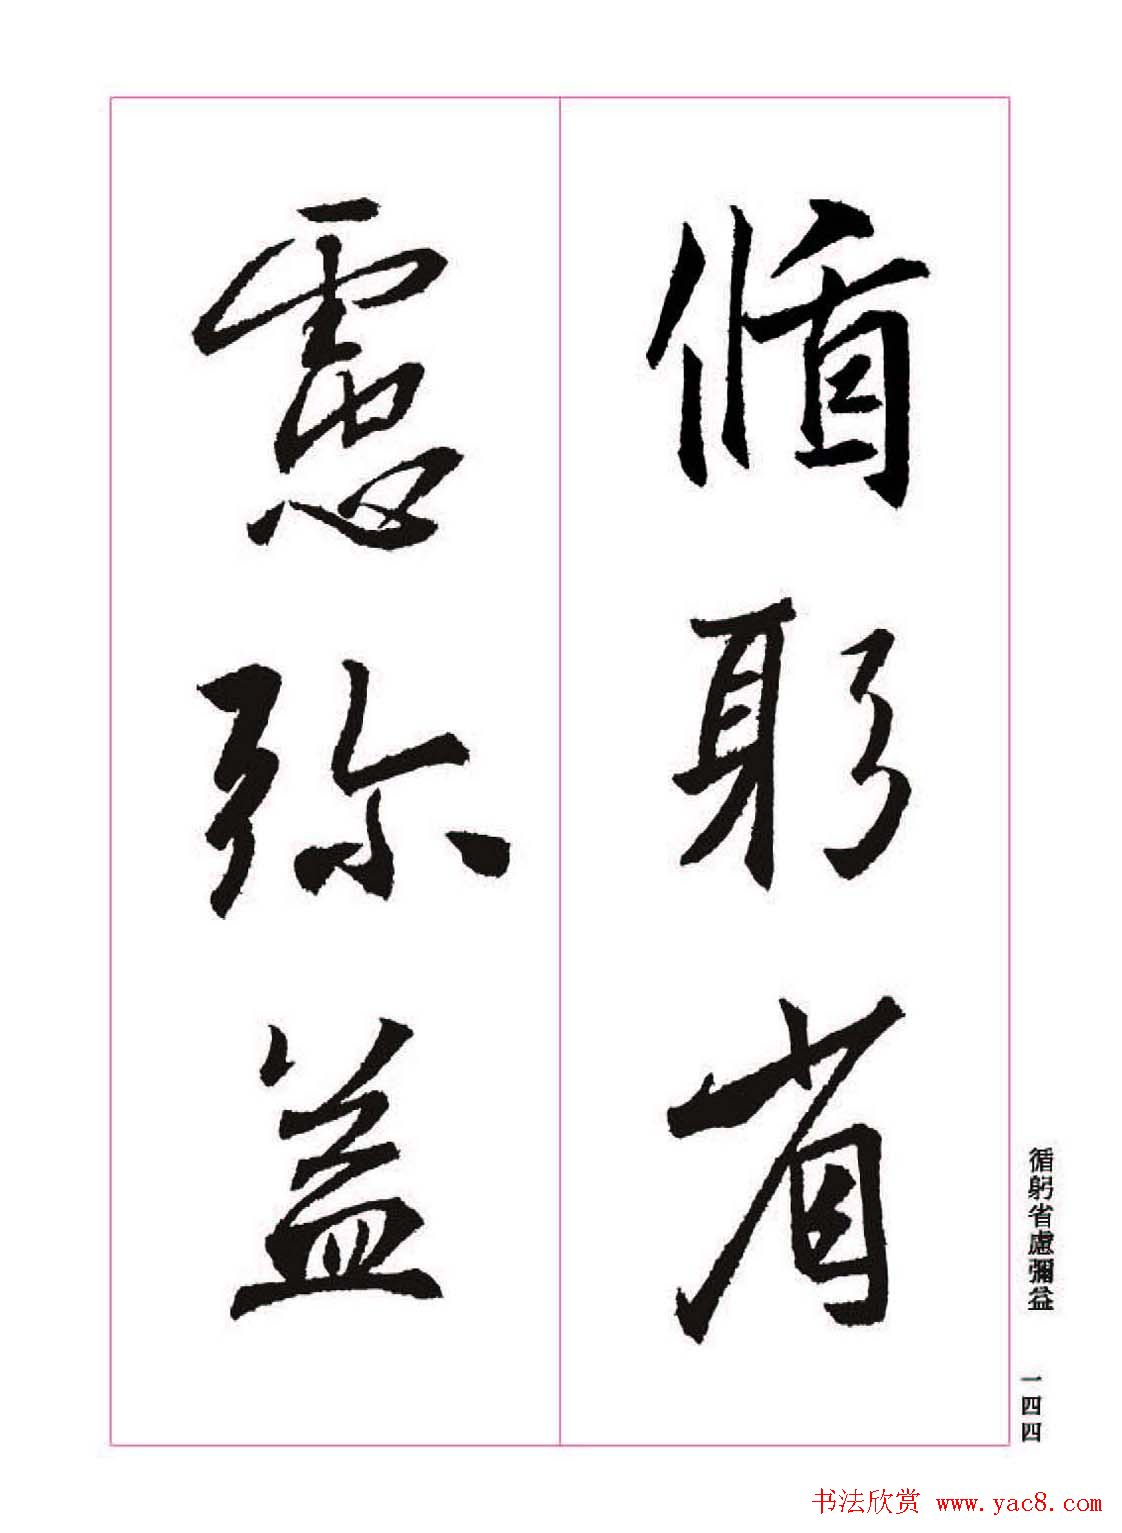 循躬省
慮弥益
循躬省慮彌益
一四四
书法欣赏 www.yac8.com